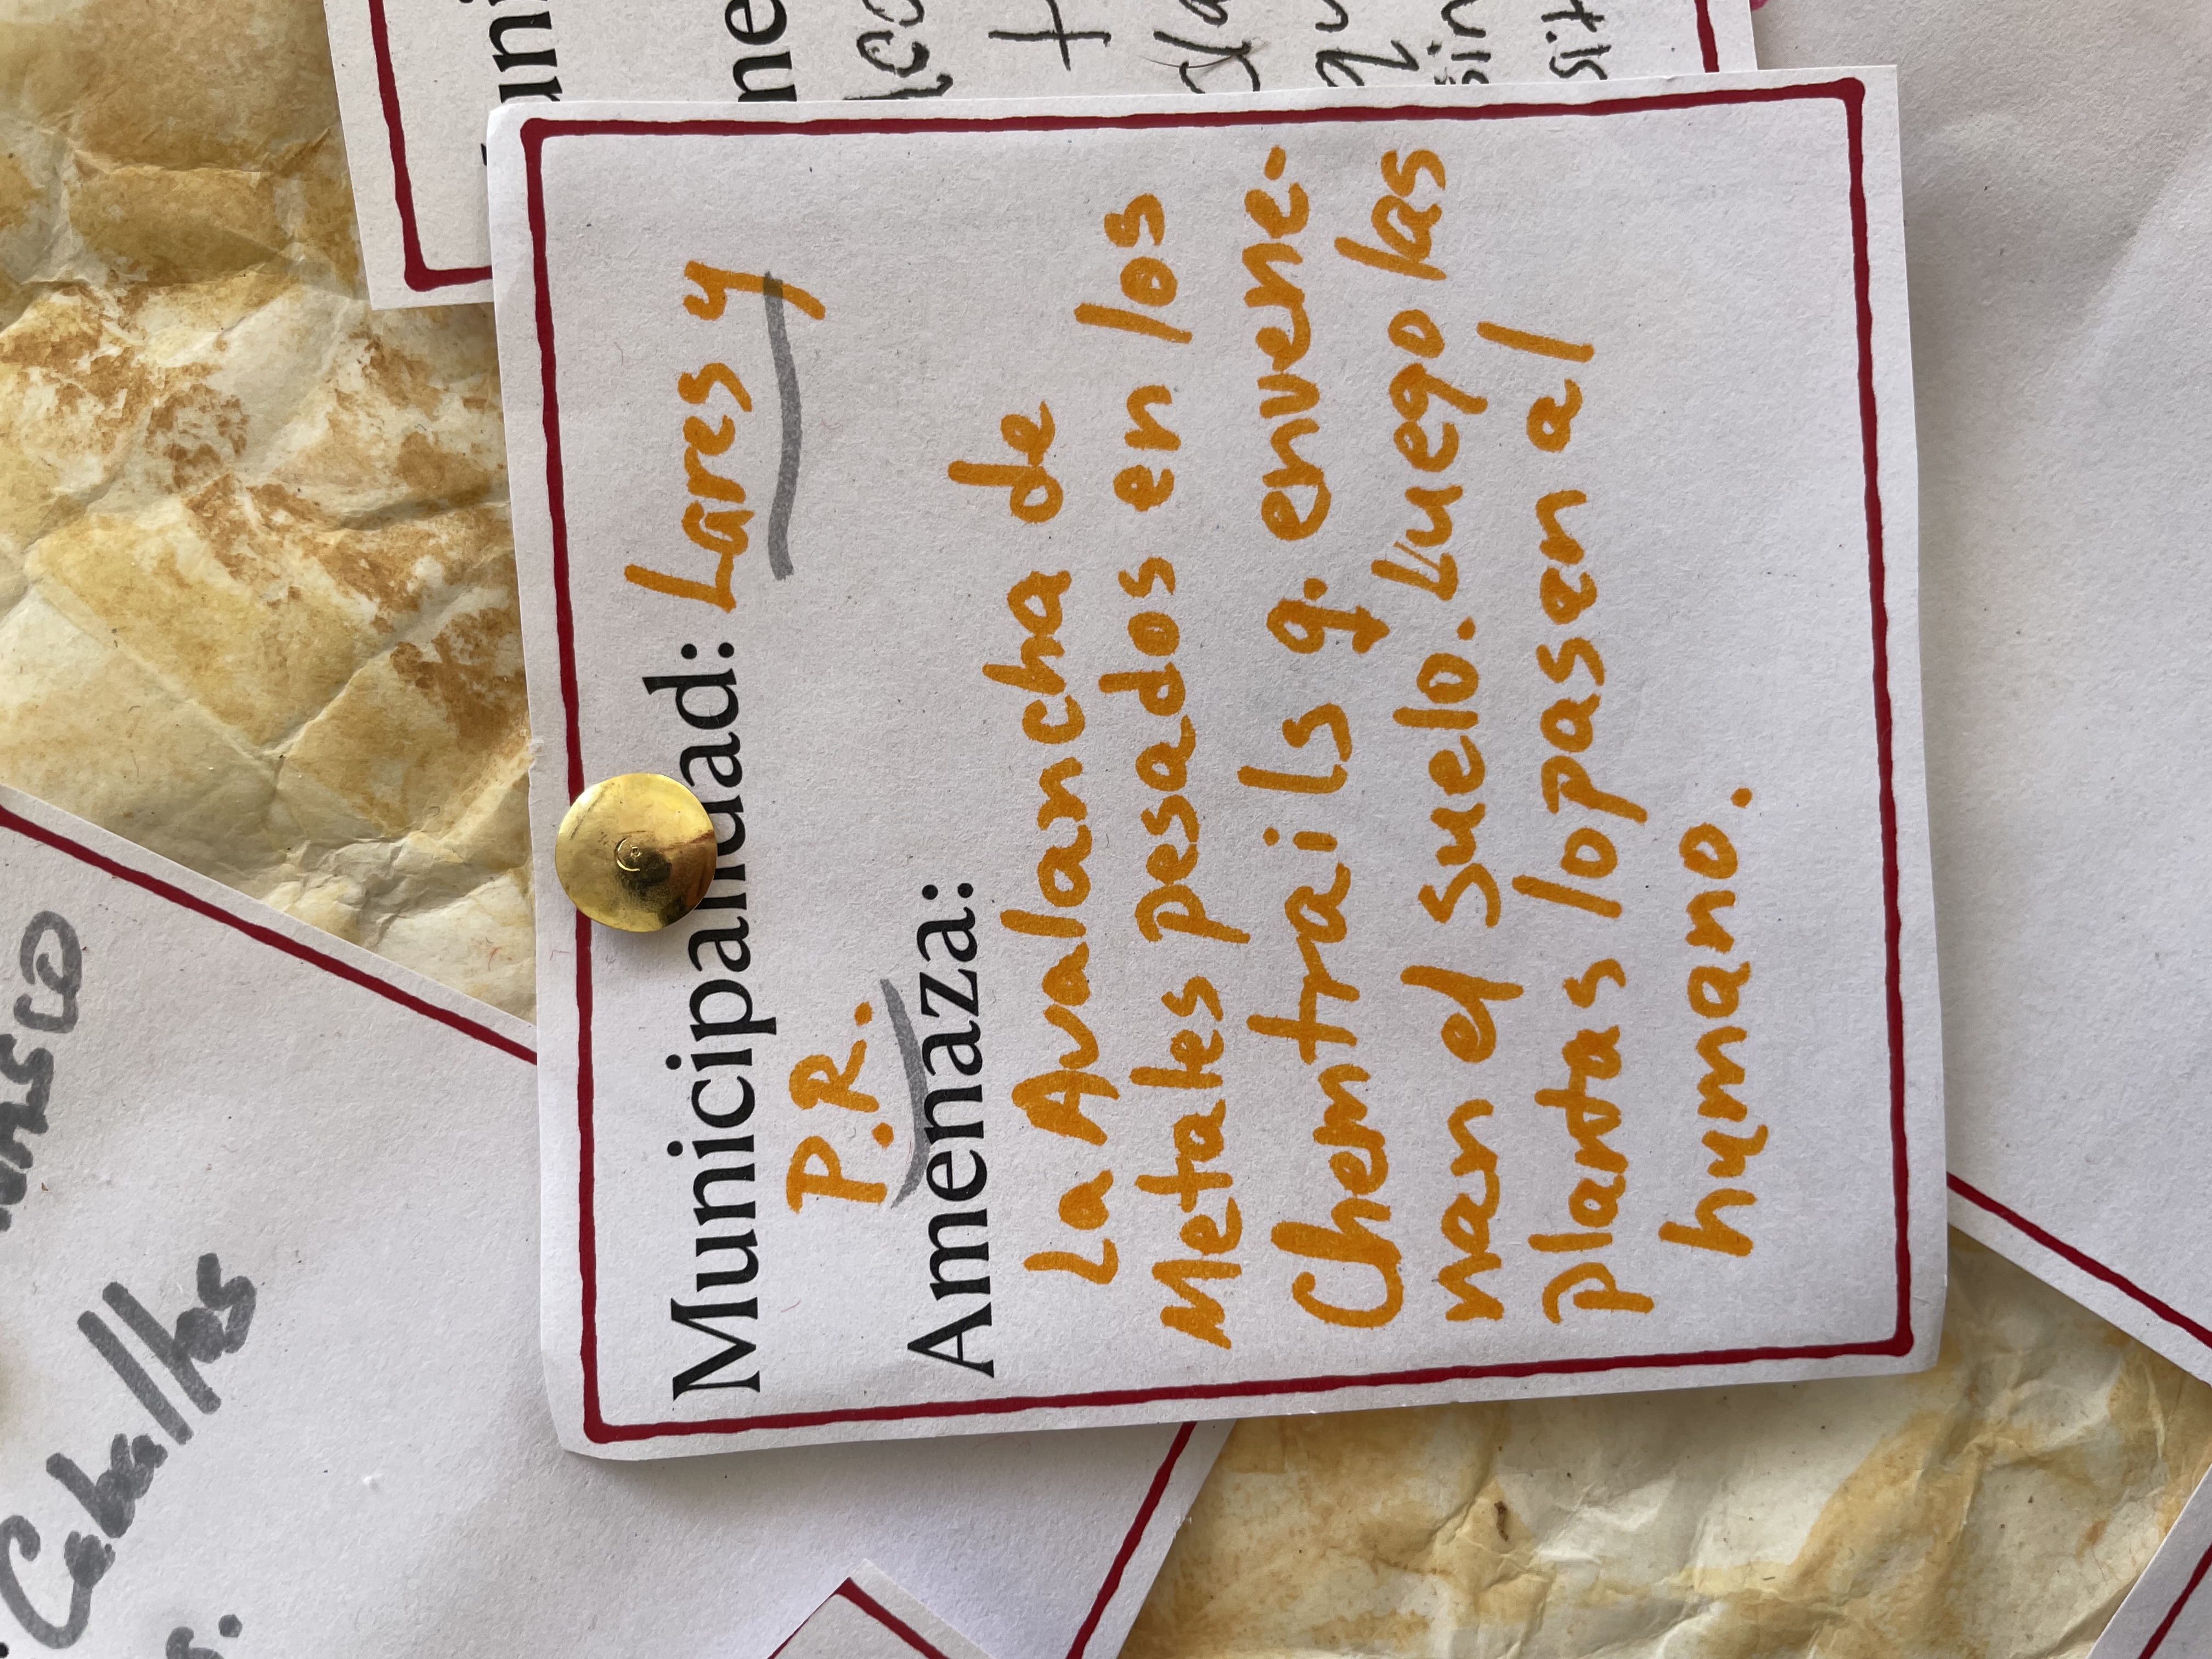 Municipalidad: Lares y
P.R.
Amenaza:
La Avalancha de
Metales pesados en los
Chemtrails q. envene-
nan el suelo. Luego las
plantas lo pasan al
humano.
Caballos